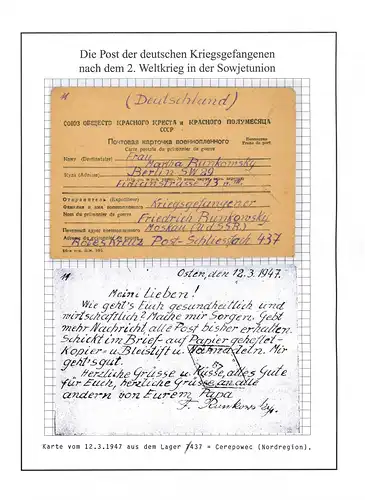 Die Post der deutschen Kriegsgefangenen
nach dem 2. Weltkrieg in der Sowjetunion
(Deutschland)
СОЮЗ ОБЩЕСТВ КРАСНОГО КРЕСТА и КРАСНОГО ПОЛУМЕСЯЦА
СССР
Почтовая карточка военнопленного
Carte postale du prisonnier de guerre
Franc de port
Frau
Кому (Destinataire) Martha Runkowsky
Куда (Adresse) Berlin SW 29
Fidicinstrasse 23
Отправитель (Expéditeur) Kriegsgefangener
Фамилия и имя военнопленного
Nom du prisonnier de guerre Friedrich Runkowsky
Почтовый адрес военнопленного Moskau (UdSSR)
Adresse du prisonnier de guerre
Rotes Kreuz Post-Schliessfach 437
Osten, den 12.3.1947.
Meine Lieben!
Wie geht's Euch gesundheitlich und
wirtschaftlich? Mache mir Sorgen. Gebt
mehr Nachricht, alle Post bisher erhalten.
Schickt im Brief auf Papier geheftet
Kopier- u Bleistift u Nähnadeln. Mir
geht's gut.
Herzliche Grüsse u Küsse, alles Gute
für Euch, herzliche Grüsse an alle
andern von Eurem Papa
F. Runkowsky.
Karte vom 12.3.1947 aus dem Lager 7437 = Cerepowec (Nordregion).